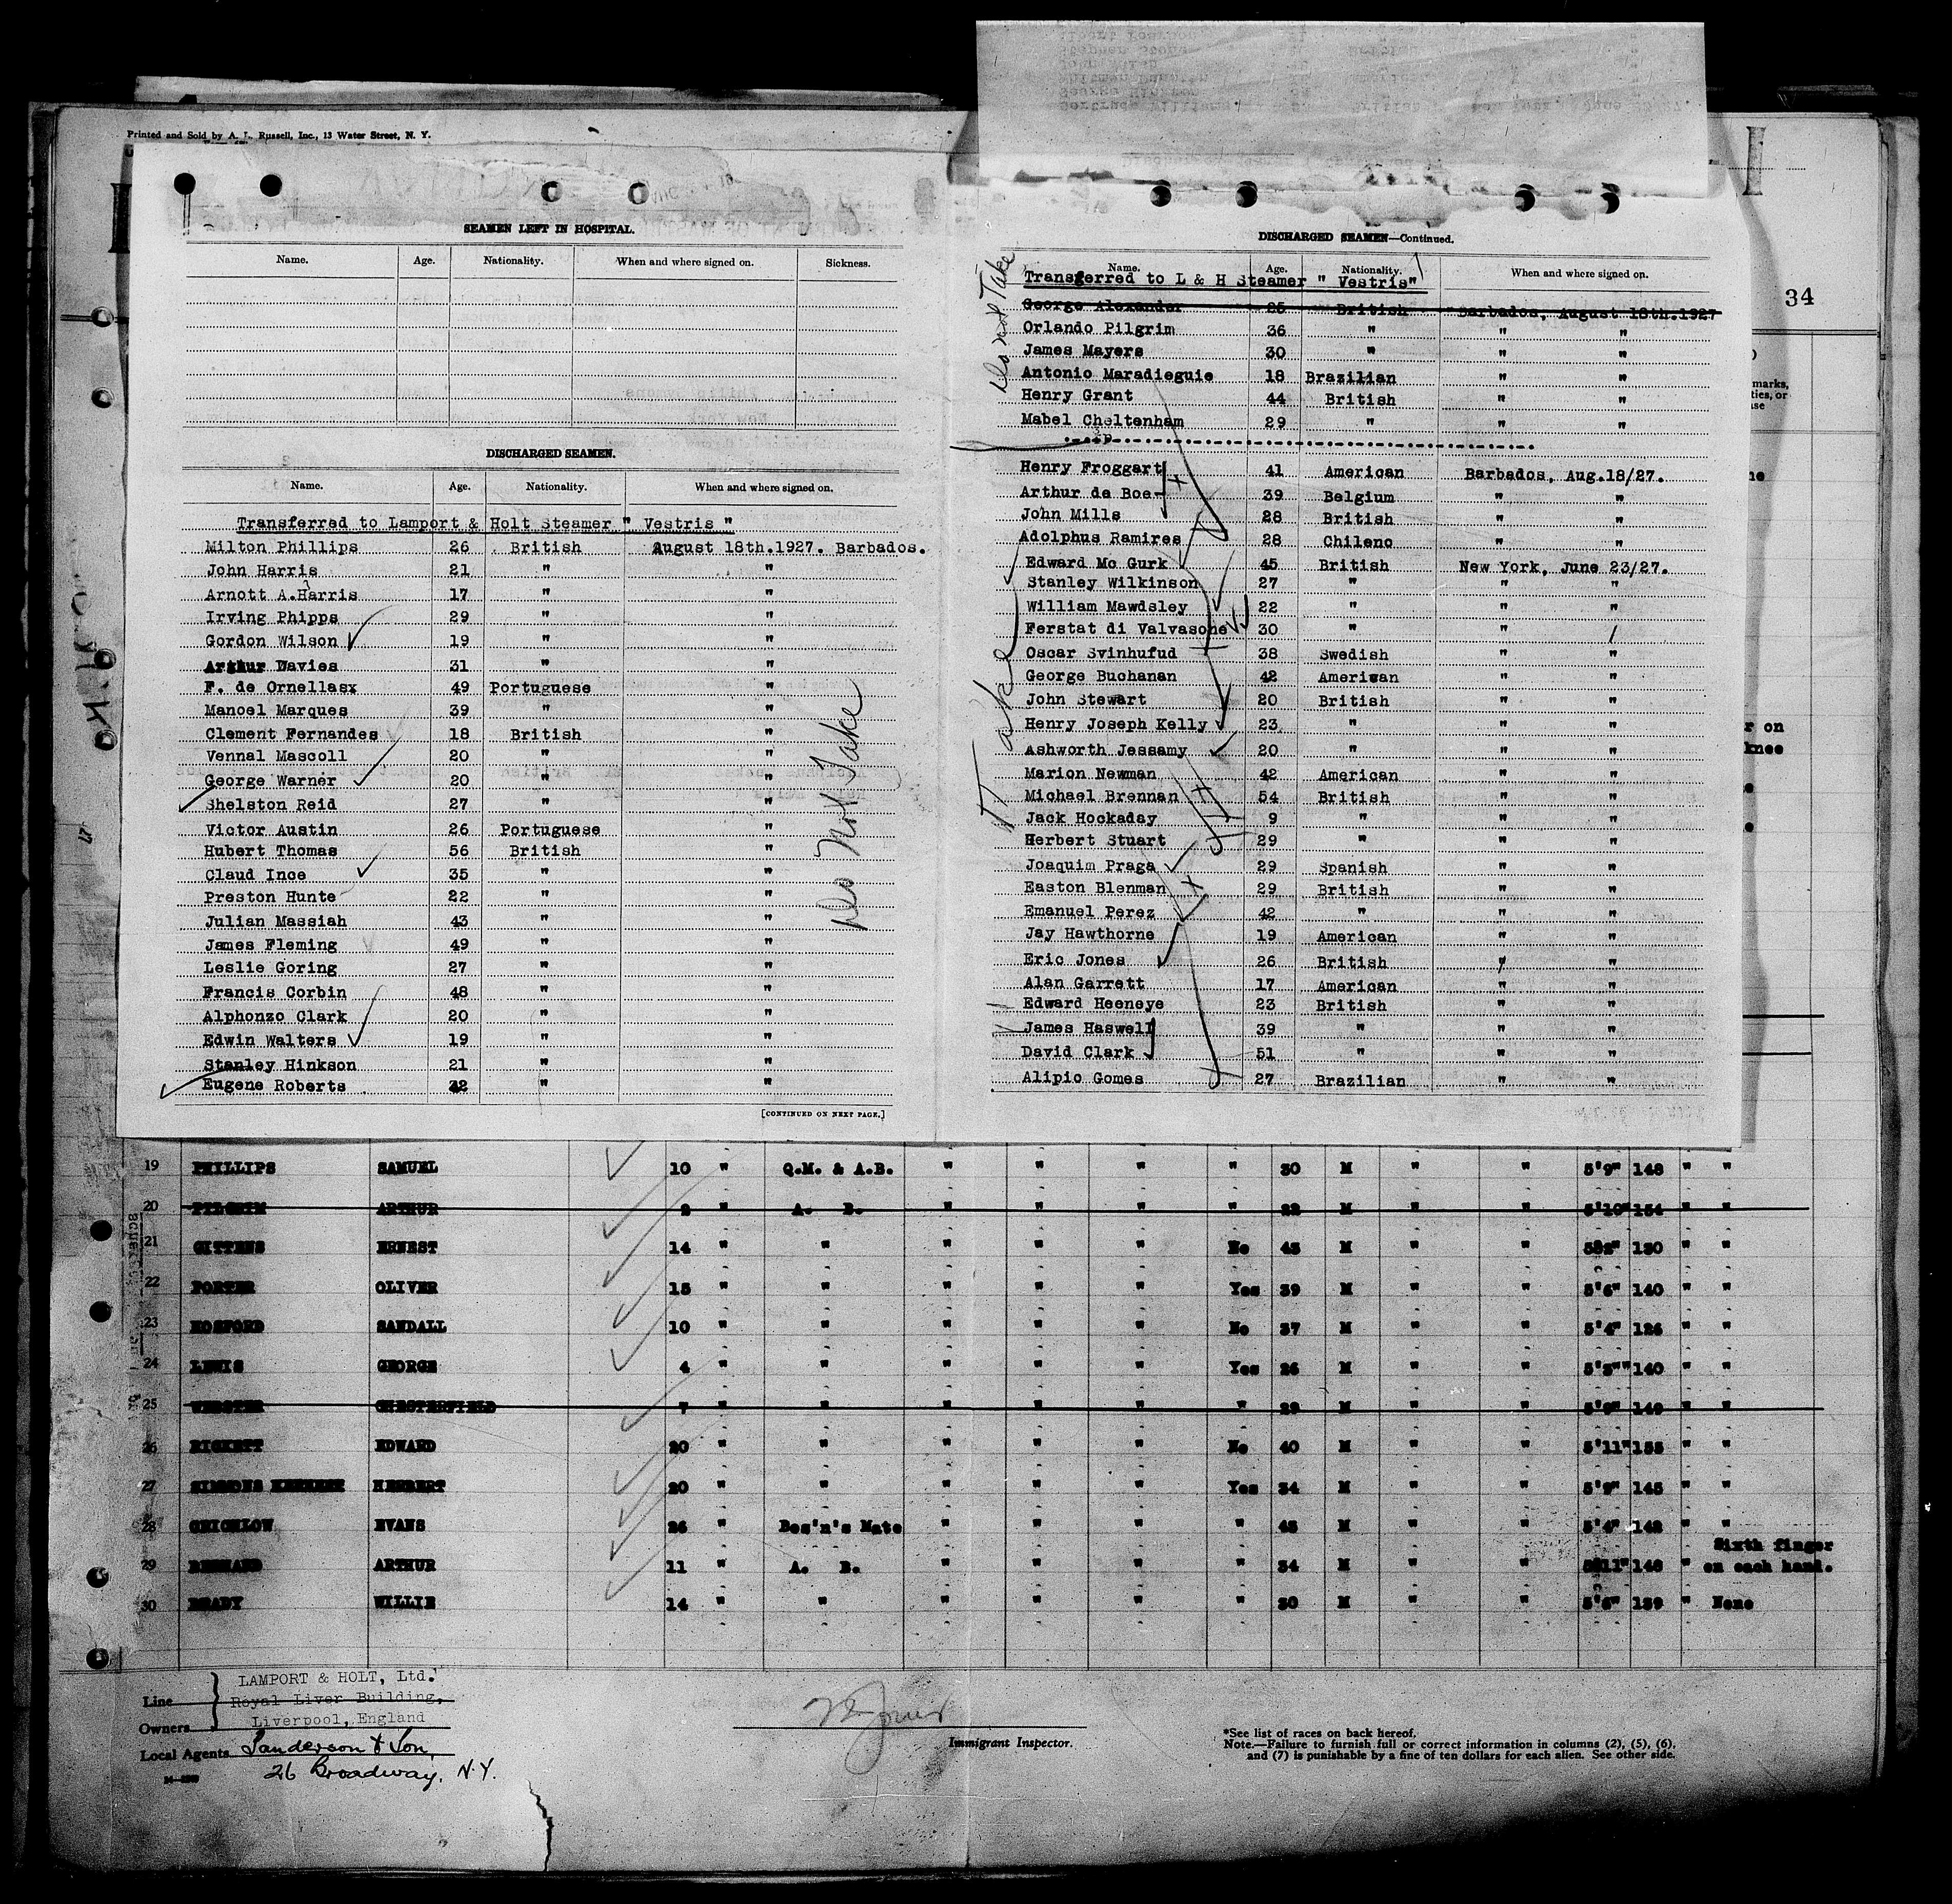 Printed and Sold by A. L. Russell, Inc., 13 Water Street, N. Y.
SEAMEN LEFT IN HOSPITAL.
Name. Age. Nationality. When and where signed on. Sickness.
DISCHARGED SEAMEN.
Name. Age. Nationality. When and where signed on.
Transferred to Lamport & Holt Steamer " Vestris "
Milton Phillips 26 British August 18th.1927. Barbados.
John Harris 21 " "
Arnott A.Harris 17 " "
Irving Phipps 29 " "
Gordon Wilson 19 " "
Arthur Davies 31 " "
F. de Ornellasx 49 Portuguese "
Manoel Marques 39 " "
Clement Fernandes 18 British "
Vennal Mascoll 20 " "
George Warner 20 " "
Shelston Reid 27 " "
Victor Austin 26 Portuguese "
Hubert Thomas 56 British "
Claud Ince 35 " "
Preston Hunte 22 " "
Julian Massiah 43 " "
James Fleming 49 " "
Leslie Goring 27 " "
Francis Corbin 48 " "
Alphonzo Clark 20 " "
Edwin Walters 19 " "
Stanley Hinkson 21 " "
Eugene Roberts 32 " "
[CONTINUED ON NEXT PAGE.]
Do Not Take
DISCHARGED SEAMEN—Continued.
Name. Age. Nationality. When and where signed on.
Transferred to L & H Steamer " Vestris"
George Alexander 25 British Barbados, August 18th.1927
Orlando Pilgrim 36 " " "
James Mayers 30 " " "
Antonio Maradieguie 18 Brazilian " "
Henry Grant 44 British " "
Mabel Cheltenham 29 " " "
Henry Froggart 41 American Barbados, Aug.18/27.
Arthur de Boe 39 Belgium " "
John Mills 28 British " "
Adolphus Ramires 28 Chileno " "
Edward Mc Gurk 45 British New York, June 23/27.
Stanley Wilkinson 27 " " "
William Mawdsley 22 " " "
Ferstat di Valvasone 30 " "
Oscar Svinhufud 38 Swedish " "
George Buchanan 42 American " "
John Stewart 20 British " "
Henry Joseph Kelly 23 " " "
Ashworth Jessamy 20 " " "
Marion Newman 42 American " "
Michael Brennan 54 British " "
Jack Hockaday 9 " " "
Herbert Stuart 29 " " "
Joaquim Praga 29 Spanish " "
Easton Blenman 29 British " "
Emanuel Perez 42 " " "
Jay Hawthorne 19 American " "
Eric Jones 26 British " "
Alan Garrett 17 American " "
Edward Heeneye 23 British " "
James Haswell 39 " " "
David Clark 51 " " "
Alipio Gomes 27 Brazilian " "
Do not Take
Take
34
marks,
ties, or
r on
knee
19 PHILLIPS SAMUEL 10 " Q.M. & A.B. " " " " 30 M " " 5'9" 148 " "
20 PILGRIM ARTHUR 2 " A. B. " " " " 22 M " " 5'10" 154 " "
21 GITTENS ERNEST 14 " " " " " No 45 M " " 130 " "
22 PORTER OLIVER 15 " " " " " Yes 39 M " " 5'6" 140 " "
23 HOSFORD SANDALL 10 " " " " " No 37 M " " 5'4" 126 " "
24 LEWIS GEORGE 4 " " " " " Yes 26 M " " 140 " "
25 WEBSTER CHESTERFIELD 7 " " " " " " 29 M " " 149 " "
26 RICKETT EDWARD 20 " " " " " No 40 M " " 5'11" 155 " "
27 SIMMONS HERBERT 20 " " " " " Yes 34 M " " 5'9" 145 " "
28 CHICHLOW EVANS 26 " Bos'n's Mate " " " " 45 M " " 5'4" 142 " "
Sixth finger
29 BERNARD ARTHUR 11 " A. B. " " " " 34 M " " 148 " on each hand.
30 BRADY WILLIE 14 " " " " " " 30 M " " 139 " None
Line LAMPORT & HOLT, Ltd.
Royal Liver Building,
Owners Liverpool, England
Local Agents Sanderson & Son,
26 Broadway, N.Y.
Immigrant Inspector.
*See list of races on back hereof.
Note.—Failure to furnish full or correct information in columns (2), (5), (6),
and (7) is punishable by a fine of ten dollars for each alien. See other side.